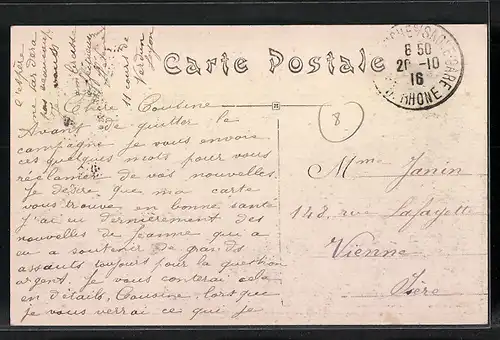 Carte Postale
8 50
20-10
16
RHONE
8
Chère Cousine
Avant de quitter la
campagne je vous envois
ces quelques mots pour vous
réclamer de vos nouvelles.
Je desire que ma carte
vous trouve en bonne santé
J'ai eu dernièrement des
nouvelles de Jeanne qui a
eu a soutenir de gas. ds
assauts toujours pour la question
argent. Je vous conterai cela
en détails, Cousine, lorsque
je vous verrai ce qui je
j'espère
ne tardera
pas beaucoup
cours de
Verdun
Lyon
Mme Janin
142, rue Lafayette
Vienne
Isère